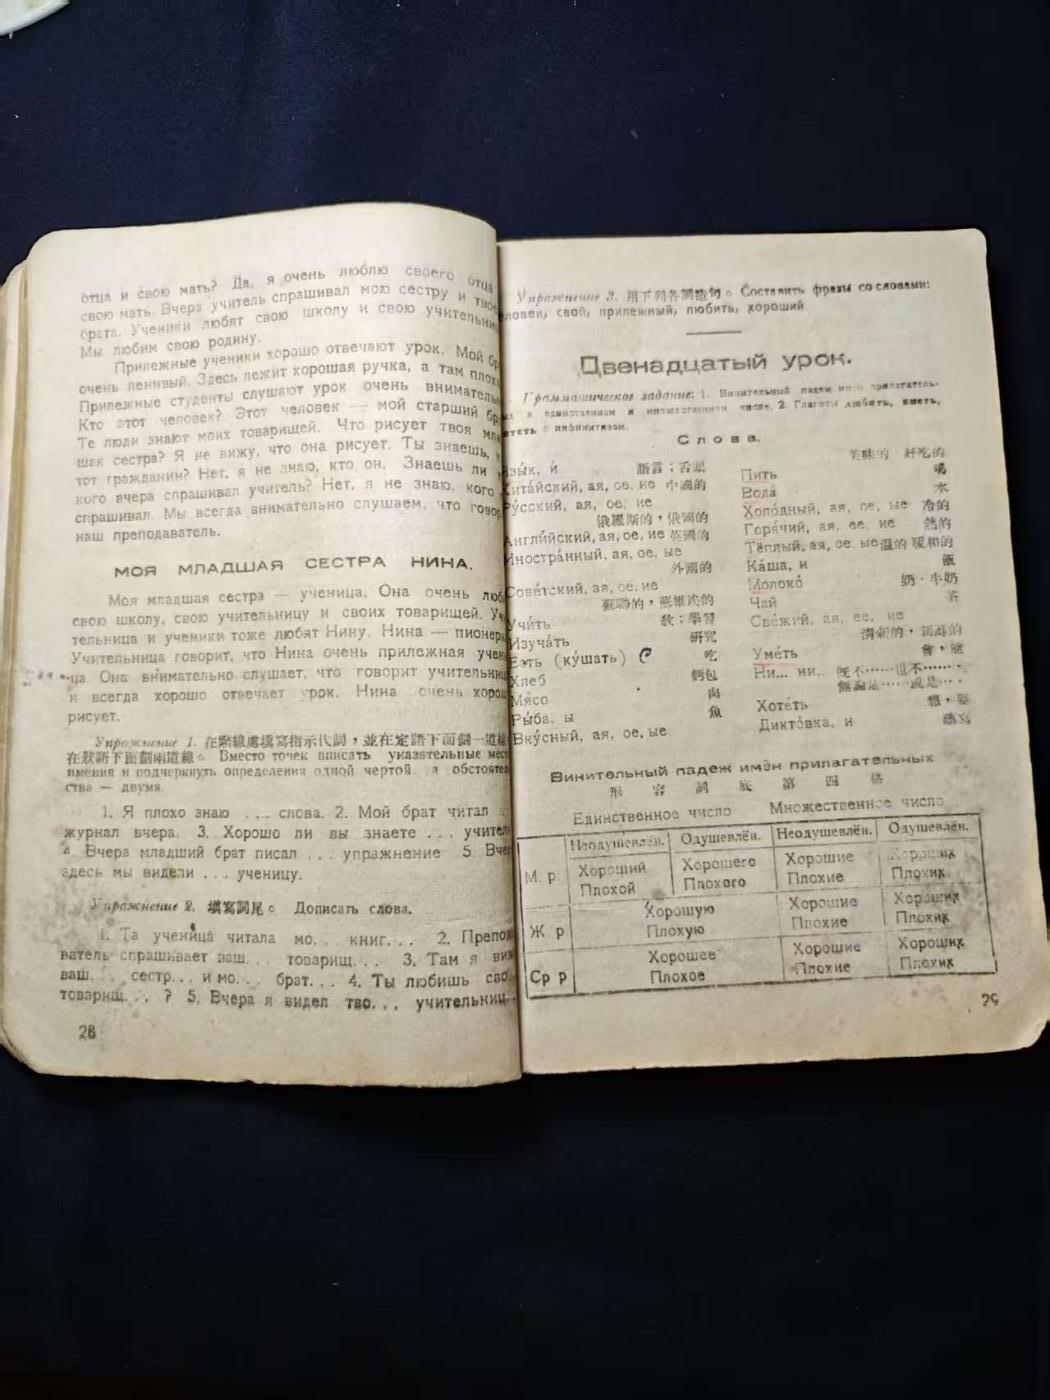 отца и свою мать? Да, я очень люблю своего отца
свою мать. Вчера учитель спрашивал мою сестру и
брата. Ученики любят свою школу и свою
Мы любим свою родину.
Прилежные ученики хорошо отвечают урок. Мой
очень ленивый. Здесь лежит хорошая ручка, а там
Прилежные студенты слушают урок очень
Кто этот человек? Этот человек — мой старший
Те люди знают моих товарищей. Что рисует твоя
шая сестра? Я не вижу, что она рисует. Ты знаешь,
тот гражданин? Нет, я не знаю, кто он. Знаешь ли
кого вчера спрашивал учитель? Нет, я не знаю, кого
спрашивал. Мы всегда внимательно слушаем, что
наш преподаватель.
МОЯ МЛАДШАЯ СЕСТРА НИНА.
Моя младшая сестра — ученица. Она очень
свою школу, свою учительницу и своих товарищей.
тельница и ученики тоже любят Нину. Нина —
Учительница говорит, что Нина очень прилежная
ца. Она внимательно слушает, что говорит
и всегда хорошо отвечает урок. Нина очень
рисует.
Упражнение 1. 在點線處填寫指示代詞，並在定語下面劃一道線
在狀語下面劃兩道線。 Вместо точек вписать указательные мест
имения и подчеркнуть определения одной чертой, а
ства — двумя.
1. Я плохо знаю ... слова. 2. Мой брат читал
журнал вчера. 3. Хорошо ли вы знаете ...
4. Вчера младший брат писал ... упражнение 5.
здесь мы видели ... ученицу.
Упражнение 2. 填寫詞尾。 Дописать слова.
1. Та ученица читала мо... книг... 2.
ватель спрашивает ваш... товарищ... 3. Там я
ваш... сестр... и мо... брат... 4. Ты любишь сво
товарищ... ? 5. Вчера я видел тво... учительниц...
28
Упражнение 3. 用下列各詞造句。 Составить фразы со словами:
ловек, свой, прилежный, любить, хороший
Двенадцатый урок.
Грамматическое задание: 1. Винительный падеж имен прилагатель-
ых в единственном и множественном числе. 2. Глаголы любить, уметь,
отеть с инфинитивом.
Слова.
язы́к, и́ 語言；舌頭
Кита́йский, ая, ое, ие 中國的
Ру́сский, ая, ое, ие
俄羅斯的，俄國的
Англи́йский, ая, ое, ие 英國的
Иностра́нный, ая, ое, ые
外國的
Сове́тский, ая, ое, ие
蘇聯的，蘇維埃的
Учи́ть 教；學習
Изуча́ть 研究
Есть (ку́шать) 吃
Хлеб 麵包
Мя́со 肉
Ры́ба, ы 魚
Вку́сный, ая, ое, ые
美味的，好吃的
Пить 喝
Вода́ 水
Холо́дный, ая, ое, ые 冷的
Горя́чий, ая, ее, ие 熱的
Тёплый, ая, ое, ые 溫的 暖和的
Ка́ша, и 飯
Молоко́ 奶，牛奶
Чай 茶
Све́жий, ая, ее, ие
清新的，新鮮的
Уме́ть 會，能
Ни... ни... 旣不……也不……，
無論是……或是…
Хоте́ть 想，要
Дикто́вка, и 聽寫
Винительный падеж имён прилагательных
形 容 詞 底 第 四 格
Единственное число Множественное число
Неодушевлён. Одушевлён. Неодушевлён. Одушевлён.
М. р Хороший Хорошего Хорошие Хороших
Плохой Плохого Плохие Плохих
Ж р Хорошую Хорошие Хороших
Плохую Плохие Плохих
Ср р Хорошее Хорошие Хороших
Плохое Плохие Плохих
29